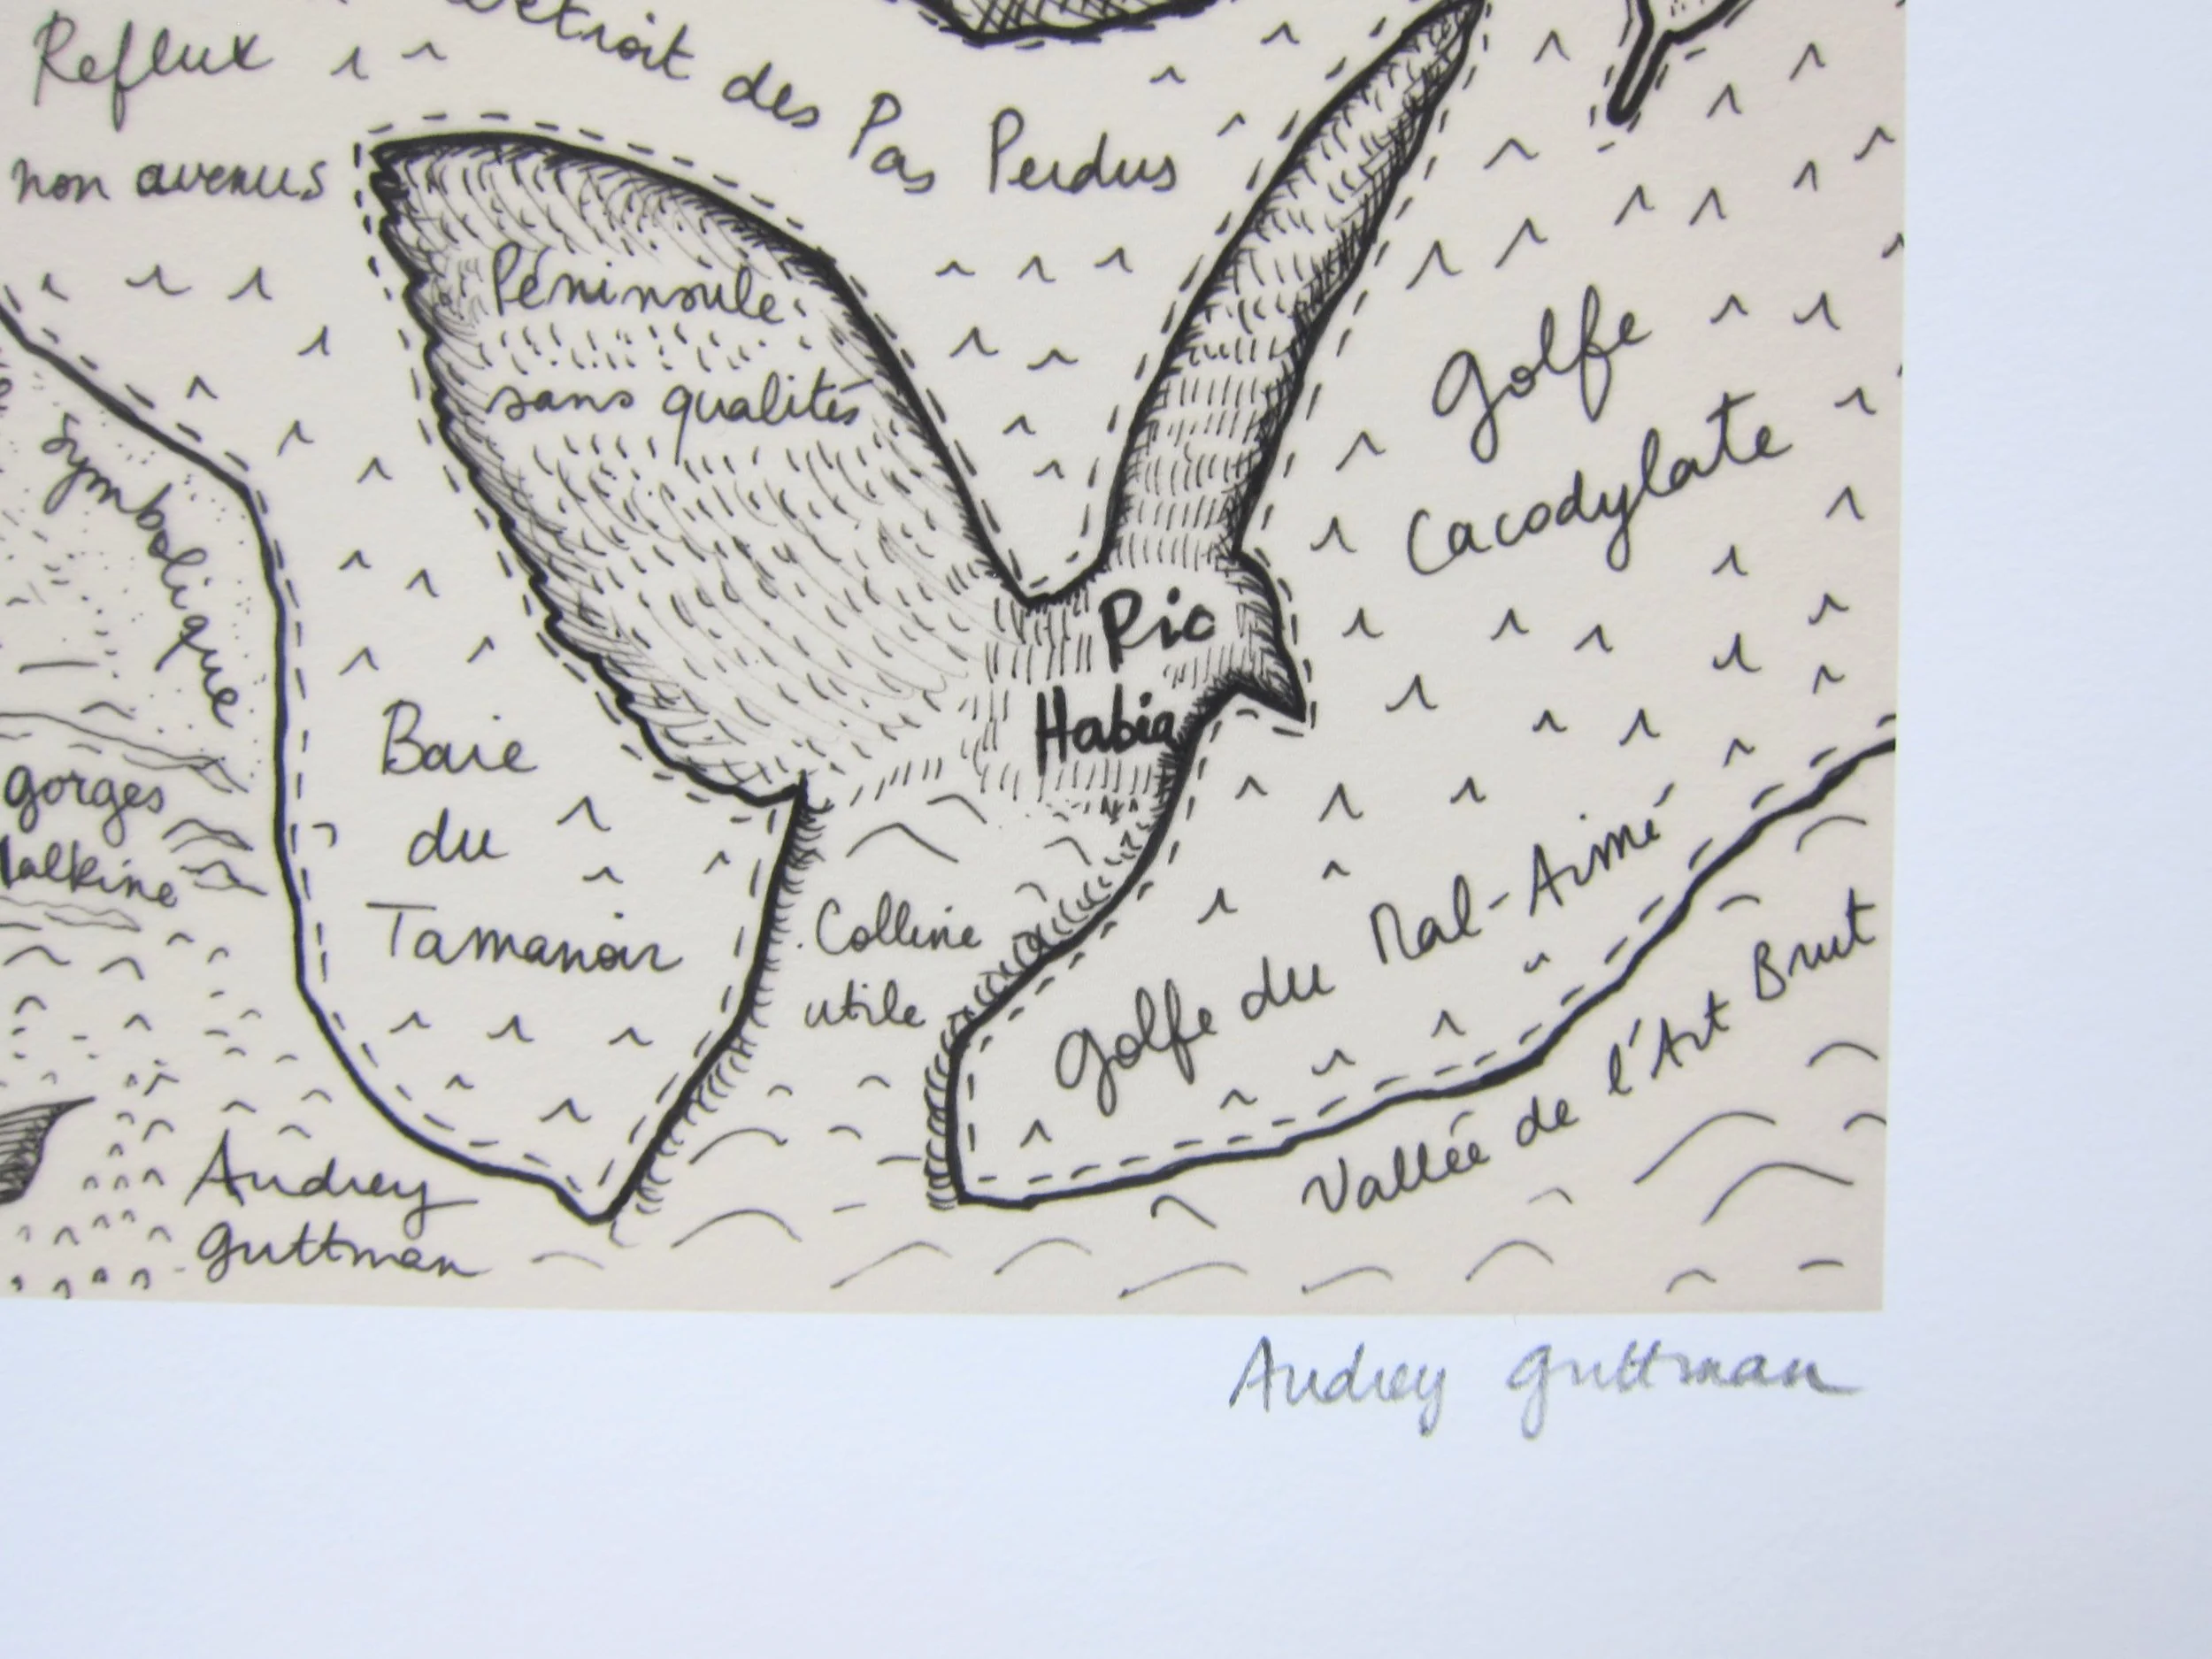 Reflux
non avenus
Détroit des Pas Perdus
Péninsule
sans qualités
Golfe
Cacodylate
symbolique
Pic
Habia
Baie
du
Tamanoir
gorges
Colline
utile
Golfe du Mal-Aimé
Vallée de l'Art Brut
Audrey
Guttman
Audrey Guttman